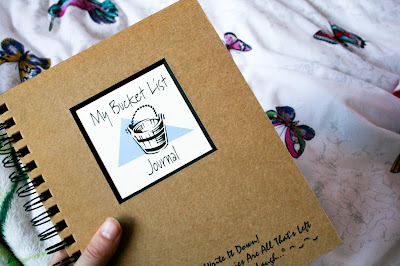 My Bucket List
Journal
Write It Down!
Are All That's Left
Laugh..."